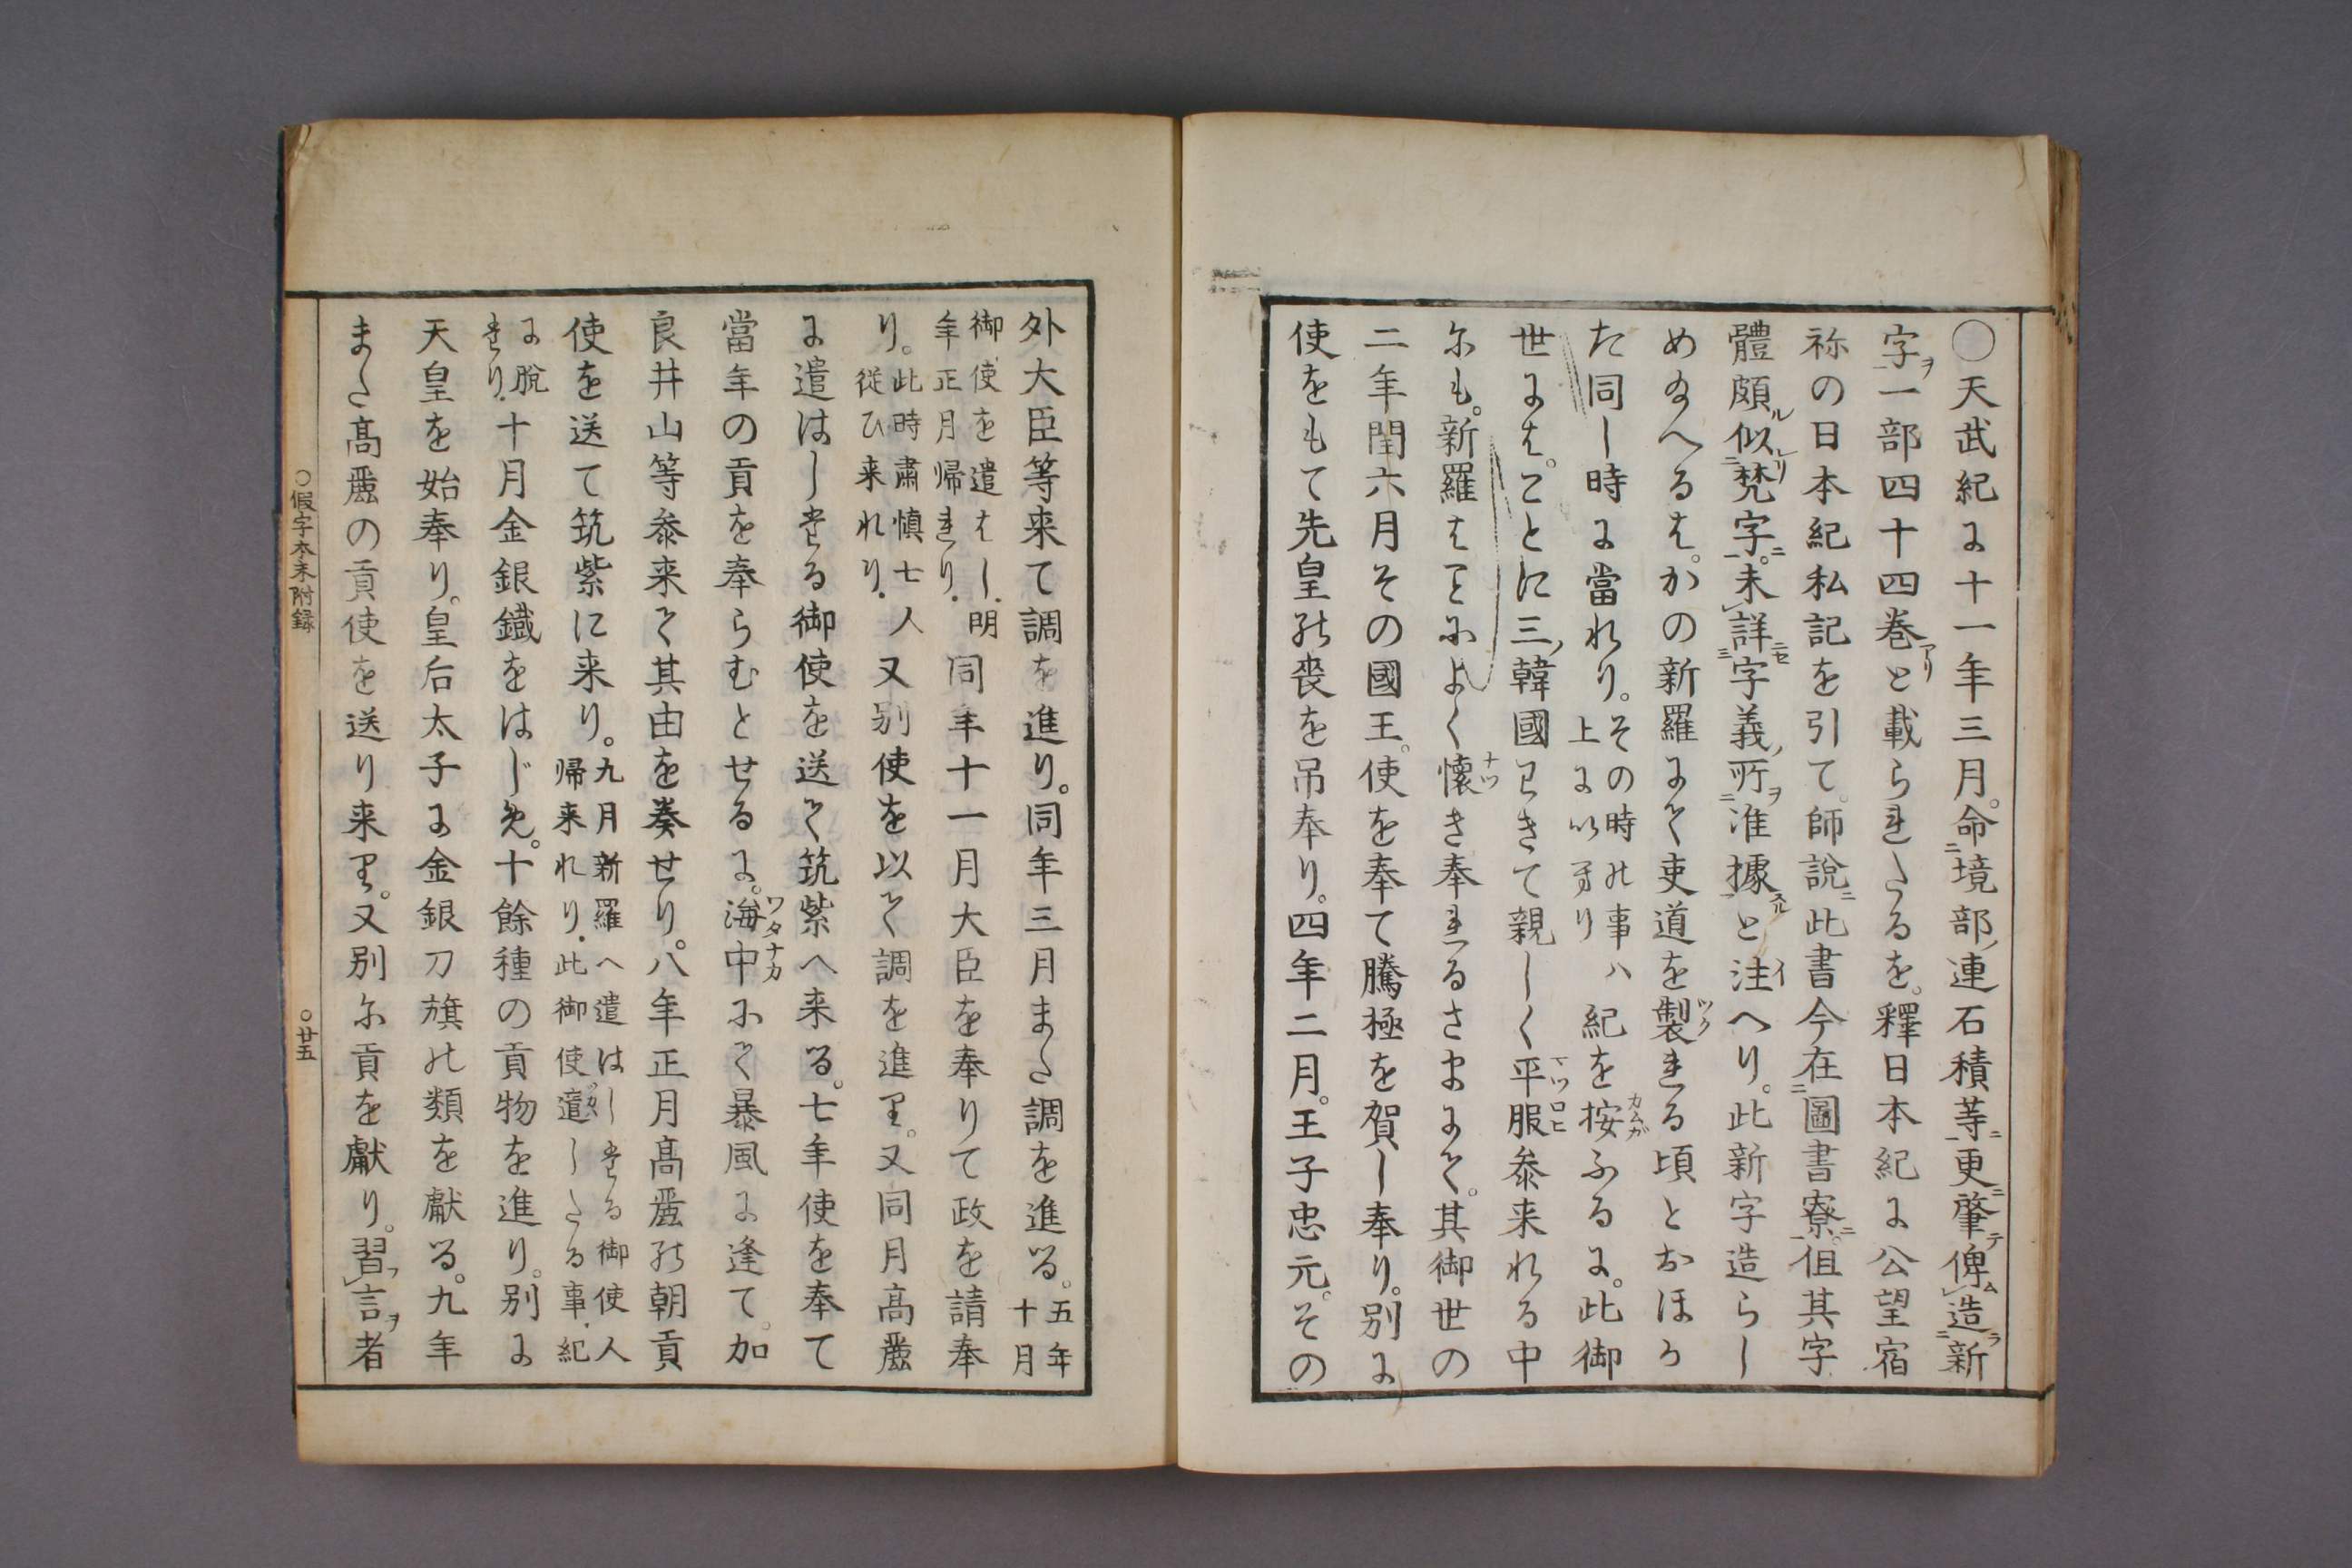 ○天武紀に十一年三月。命境部連石積等更肇俾造新
字一部四十四巻と載られたるを。釋日本紀に公望宿
祢の日本紀私記を引て。師說此書今在圖書寮。但其字
體頗似梵字。未詳字義所准據と注へり。此新字造らし
め給へるは。かの新羅にて吏道を製れる頃とおほか
た同し時に當れり。その時の事ハ上に以まり紀を按ふるに。此御
世には。ことに三韓國わきて親しく平服参来れる中
にも。新羅はことによく懷き奉れるさまにて。其御世の
二年閏六月その國王。使を奉て騰極を賀し奉り。別に
使をもて先皇の喪を吊奉り。四年二月。王子忠元。その
外大臣等来て調を進り。同年三月また調を進る。五年十月
御使を遣はし.明年正月帰れり.同年十一月大臣を奉りて政を請奉
り。此時肅慎七人従ひ来れり.又別使を以て調を進り。又同月高麗
に遣はしたる御使を送て筑紫へ来る。七年使を奉て
當年の貢を奉らむとせるに。海中にて暴風に逢て。加
良井山等参来て其由を奏せり。八年正月高麗の朝貢
使を送て筑紫に来り。九月新羅へ遣はしたる御使人帰来れり.此御使遣しゝる事.紀
に脫たり.十月金銀鐵をはじめ。十餘種の貢物を進り。別に
天皇を始奉り。皇后太子に金銀刀旗の類を獻る。九年
また高麗の貢使を送り来り。又別に貢を獻り。習言者
○假字本末附録
○廿五